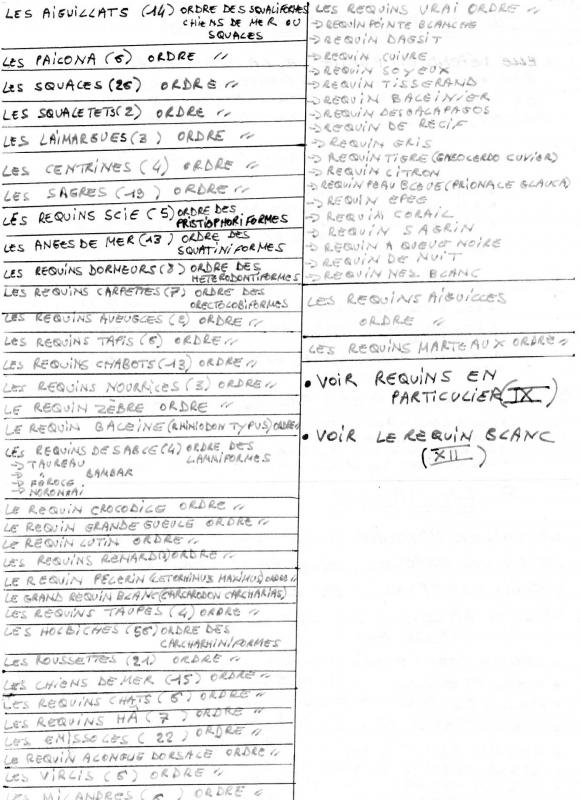 LES AIGUILLATS (14) ORDRE DES SQUALIFORMES
CHIENS DE MER OU
SQUALES
LES PAILONA (6) ORDRE "
LES SQUALES (26) ORDRE "
LES SQUALETETS (2) ORDRE "
LES LAIMARGUES (3) ORDRE "
LES CENTRINES (4) ORDRE "
LES SAGRES (19) ORDRE "
LES REQUINS SCIE (5) ORDRE DES
PRISTIOPHORIFORMES
LES ANGES DE MER (13) ORDRE DES
SQUATINIFORMES
LES REQUINS DORMEURS (8) ORDRE DES
HETERODONTIFORMES
LES REQUINS CARPETTES (7) ORDRE DES
ORECTOLOBIFORMES
LES REQUINS AVEUGLES (2) ORDRE "
LES REQUINS TAPIS (6) ORDRE "
LES REQUINS CHABOTS (13) ORDRE "
LES REQUINS NOURRICES (3) ORDRE "
LE REQUIN ZÈBRE ORDRE "
LE REQUIN BALEINE (RHINIODON TYPUS) ORDRE "
LES REQUINS DE SABLE (4) ORDRE DES
LAMNIFORMES
→ TAUREAU
→ " BAMBAR
→ FÉROCE
→ NORONHAI
LE REQUIN CROCODILE ORDRE "
LE REQUIN GRANDE GUEULE ORDRE "
LE REQUIN LUTIN ORDRE "
LES REQUINS RENARD ORDRE "
LE REQUIN PÈLERIN (CETORHINUS MAXIMUS) ORDRE "
LE GRAND REQUIN BLANC (CARCARODON CARCHARIAS)
LES REQUINS TAUPES (4) ORDRE "
LES HOLBICHES (56) ORDRE DES
CARCHARHINIFORMES
LES ROUSSETTES (21) ORDRE "
LES CHIENS DE MER (15) ORDRE "
LES REQUINS CHATS (6) ORDRE "
LES REQUINS HÂ (7) ORDRE "
LES EMISSOLES (22) ORDRE "
LE REQUIN A LONGUE DORSALE ORDRE "
LES VIRLIS (6) ORDRE "
LES MILANDRES (6) ORDRE "
LES REQUINS VRAI ORDRE "
→ REQUIN POINTE BLANCHE
→ REQUIN DAGSIT
→ REQUIN CUIVRE
→ REQUIN SOYEUX
→ REQUIN TISSERAND
→ REQUIN BALEINIER
→ REQUIN DES GALAPAGOS
→ REQUIN DE RÉCIF
→ REQUIN GRIS
→ REQUIN TIGRE (GALEOCERDO CUVIER)
→ REQUIN CITRON
→ REQUIN PEAU BLEUE (PRIONACE GLAUCA)
→ REQUIN EPEE
→ REQUIN CORAIL
→ REQUIN SAGRIN
→ REQUIN A QUEUE NOIRE
→ REQUIN DE NUIT
→ REQUIN NEZ BLANC
LES REQUINS AIGUILLES
ORDRE "
LES REQUINS MARTEAUX ORDRE "
• VOIR REQUINS EN
PARTICULIER (IX)
• VOIR LE REQUIN BLANC
(XII)